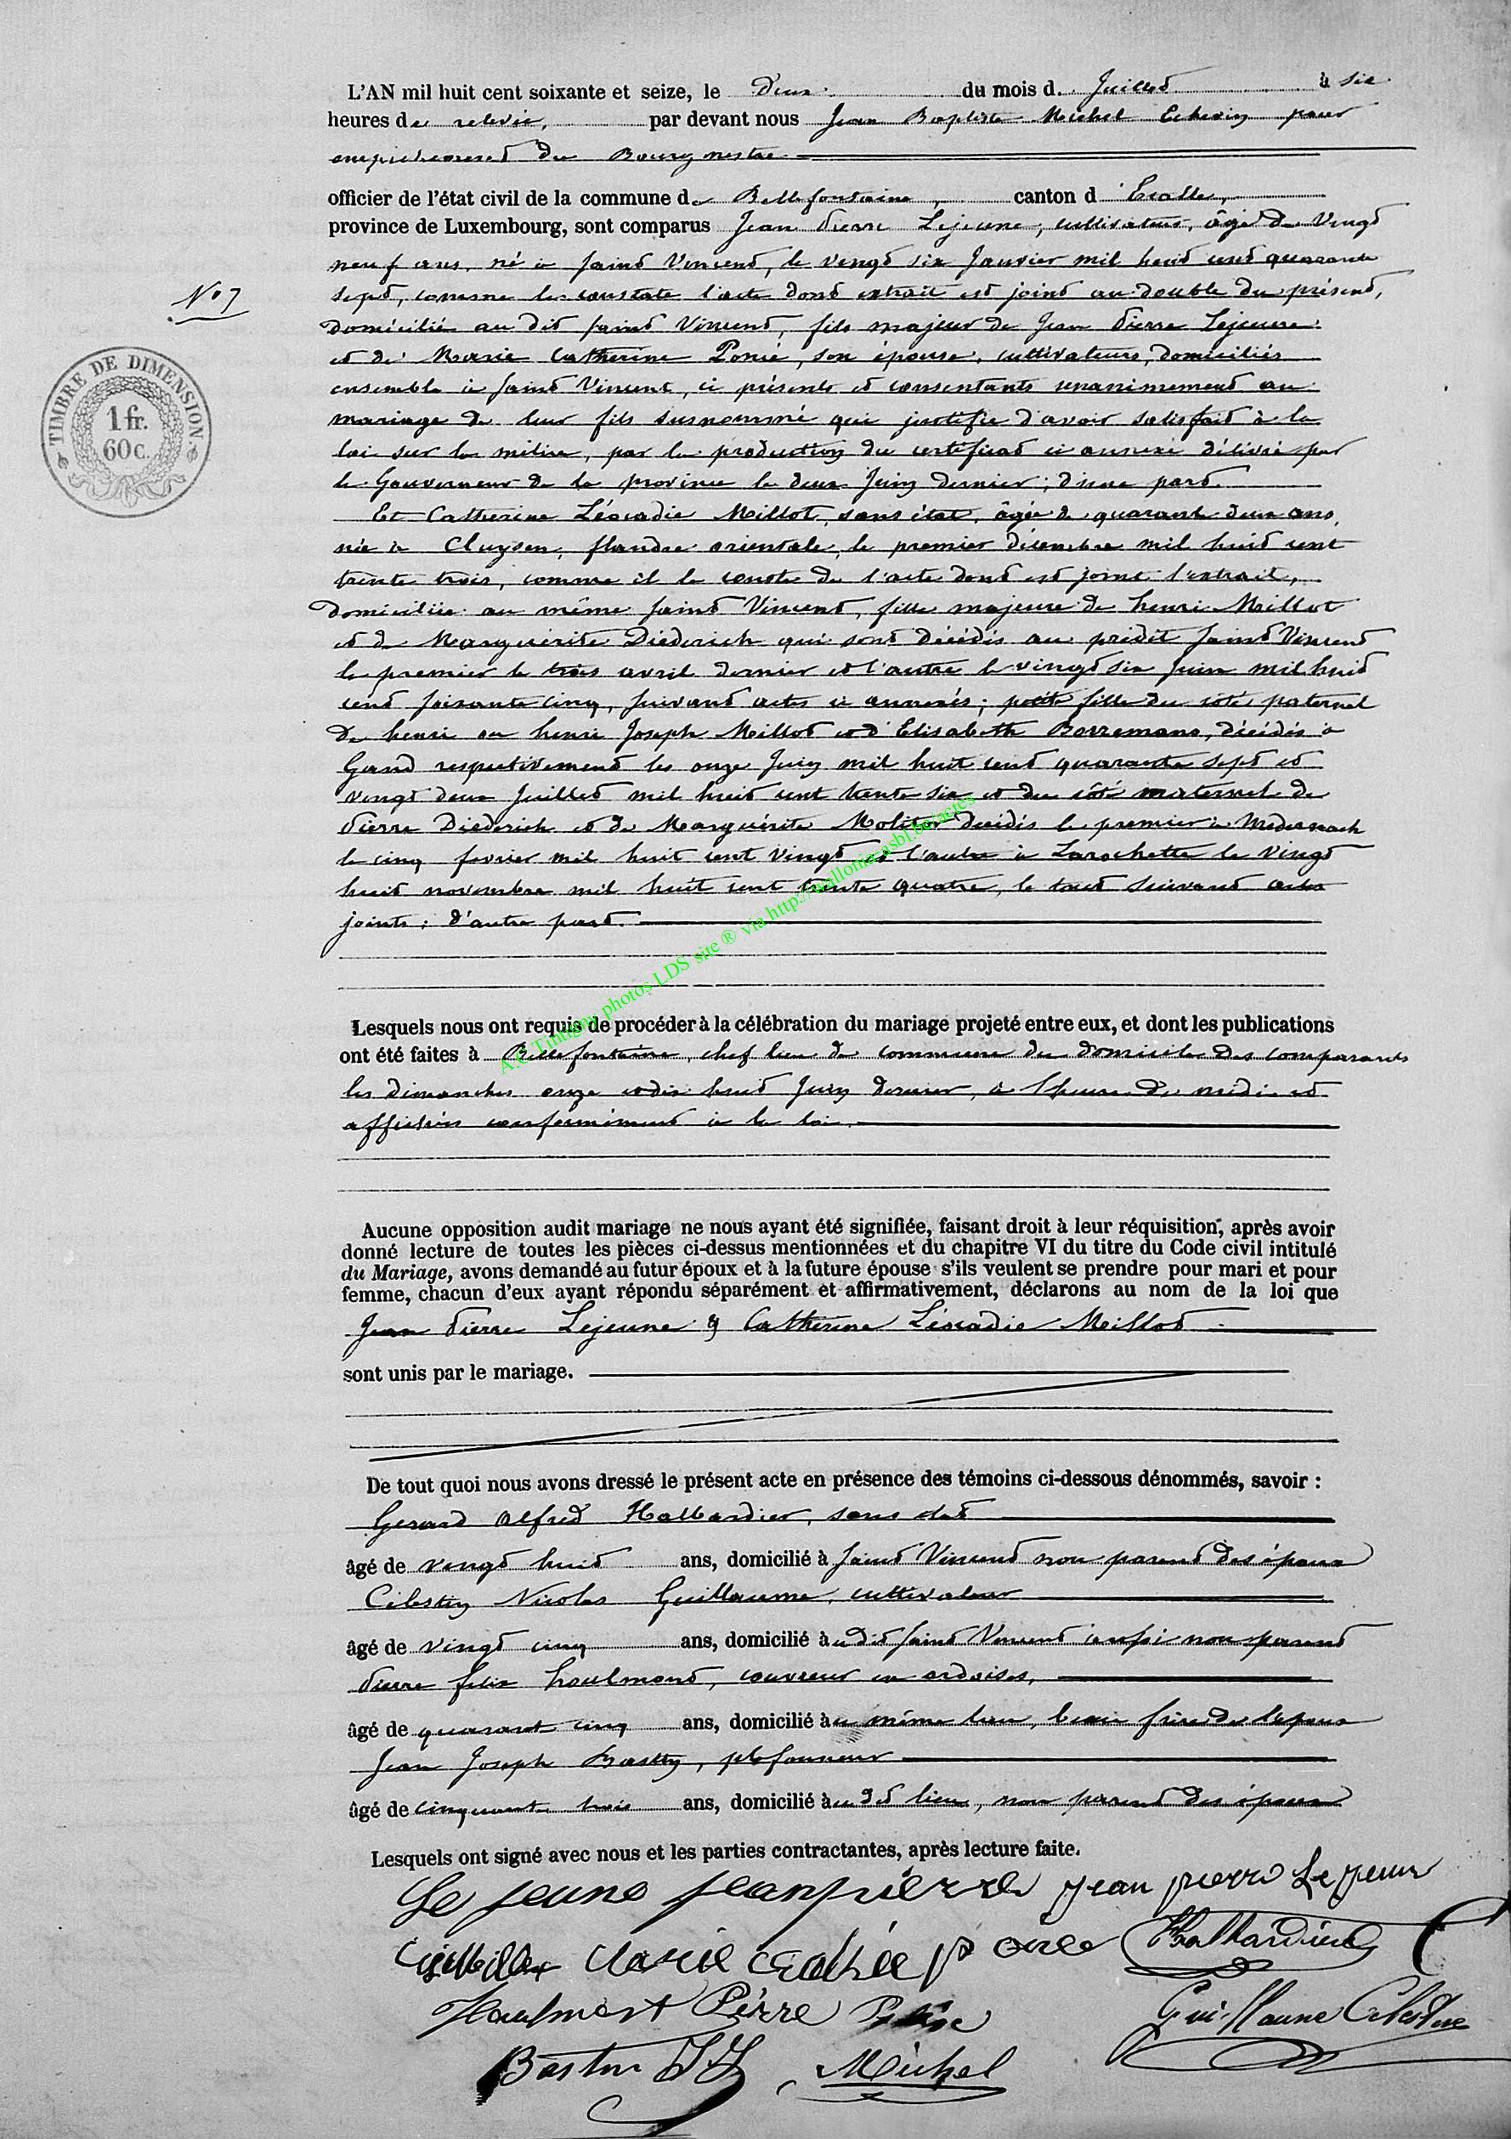 L'AN mil huit cent soixante et seize, le deux du mois d. Juillet à six
heures de relevée, par devant nous Jean Baptiste Michel Echevin pour
empêchement du Bourgmestre
officier de l'état civil de la commune de Bellefontaine, canton d'Etalle,
province de Luxembourg, sont comparus Jean Pierre Lejeune, cultivateur, âgé de vingt
neuf ans, né à Saint Vincent, le vingt six Janvier mil huit cent quarante
sept, comme le constate l'acte dont extrait est joint au double du présent,
domicilié au dit Saint Vincent, fils majeur de Jean Pierre Lejeune
et de Marie Catherine Poncé, son épouse, cultivateurs, domiciliés
ensemble à Saint Vincent, ci présents et consentants unanimement au
mariage de leur fils susnommé qui justifie d'avoir satisfait à la
loi sur la milice, par la production du certificat ci annexé délivré par
le Gouverneur de la province le deux Juin dernier; d'une part.
Et Catherine Léocadie Millot, sans état, âgée de quarante deux ans,
née à Cluysen, flandre orientale, le premier décembre mil huit cent
trente trois, comme il le conste de l'acte dont est joint l'extrait,
domiciliée au même Saint Vincent, fille majeure de henri Millot
et de Marguérite Diederich qui sont décédés au prédit Saint Vincent
le premier le trois avril dernier et l'autre le vingt six Juin mil huit
cent soixante cinq, suivant actes ci annexés; petite fille du côté paternel
de henri ou henri Joseph Millot et d'Elisabeth Borremans, décédés à
Gand respectivement les onze Juin mil huit cent quarante sept et
vingt deux Juillet mil huit cent trente six et du côté maternel de
Pierre Diederich et de Marguérite Molitor décédés le premier à Medernach
le cinq fevrier mil huit cent vingt et l'autre à Larochette le vingt
huit novembre mil huit cent trente quatre, le tout suivant actes
joints; d'autre part.
No 7
TIMBRE DE DIMENSION
1 fr.
60 c.
A.C Tintigny photos LDS site ® via http://walloniasasbl.be/actes
Lesquels nous ont requis de procéder à la célébration du mariage projeté entre eux, et dont les publications
ont été faites à Bellefontaine, chef lieu de commune du domicile des comparants
les dimanches onze et dix huit Juin dernier, à l'heure de midi et
affichées conformément à la loi.
Aucune opposition audit mariage ne nous ayant été signifiée, faisant droit à leur réquisition, après avoir
donné lecture de toutes les pièces ci-dessus mentionnées et du chapitre VI du titre du Code civil intitulé
du Mariage, avons demandé au futur époux et à la future épouse s'ils veulent se prendre pour mari et pour
femme, chacun d'eux ayant répondu séparément et affirmativement, déclarons au nom de la loi que
Jean Pierre Lejeune & Catherine Léocadie Millot
sont unis par le mariage.
De tout quoi nous avons dressé le présent acte en présence des témoins ci-dessous dénommés, savoir :
Gerard Alfred Hallardier, sans état
âgé de vingt huit ans, domicilié à Saint Vincent non parent des époux
Célestin Nicolas Guillaume, cultivateur
âgé de vingt cinq ans, domicilié à u dit Saint Vincent aussi non parent
Pierre felix houlmont, couvreur en ardoises,
âgé de quarante cinq ans, domicilié à u même lieu, beau frère de l'époux
Jean Joseph Bastin, plafonneur
âgé de cinquante trois ans, domicilié à u dit lieu, non parent des époux
Lesquels ont signé avec nous et les parties contractantes, après lecture faite.
Le jeune jean pierre jean pierre Le jeune
Marie Hallardier
Houlmont Pierre Guillaume Celestin
Bastin JJ Michel